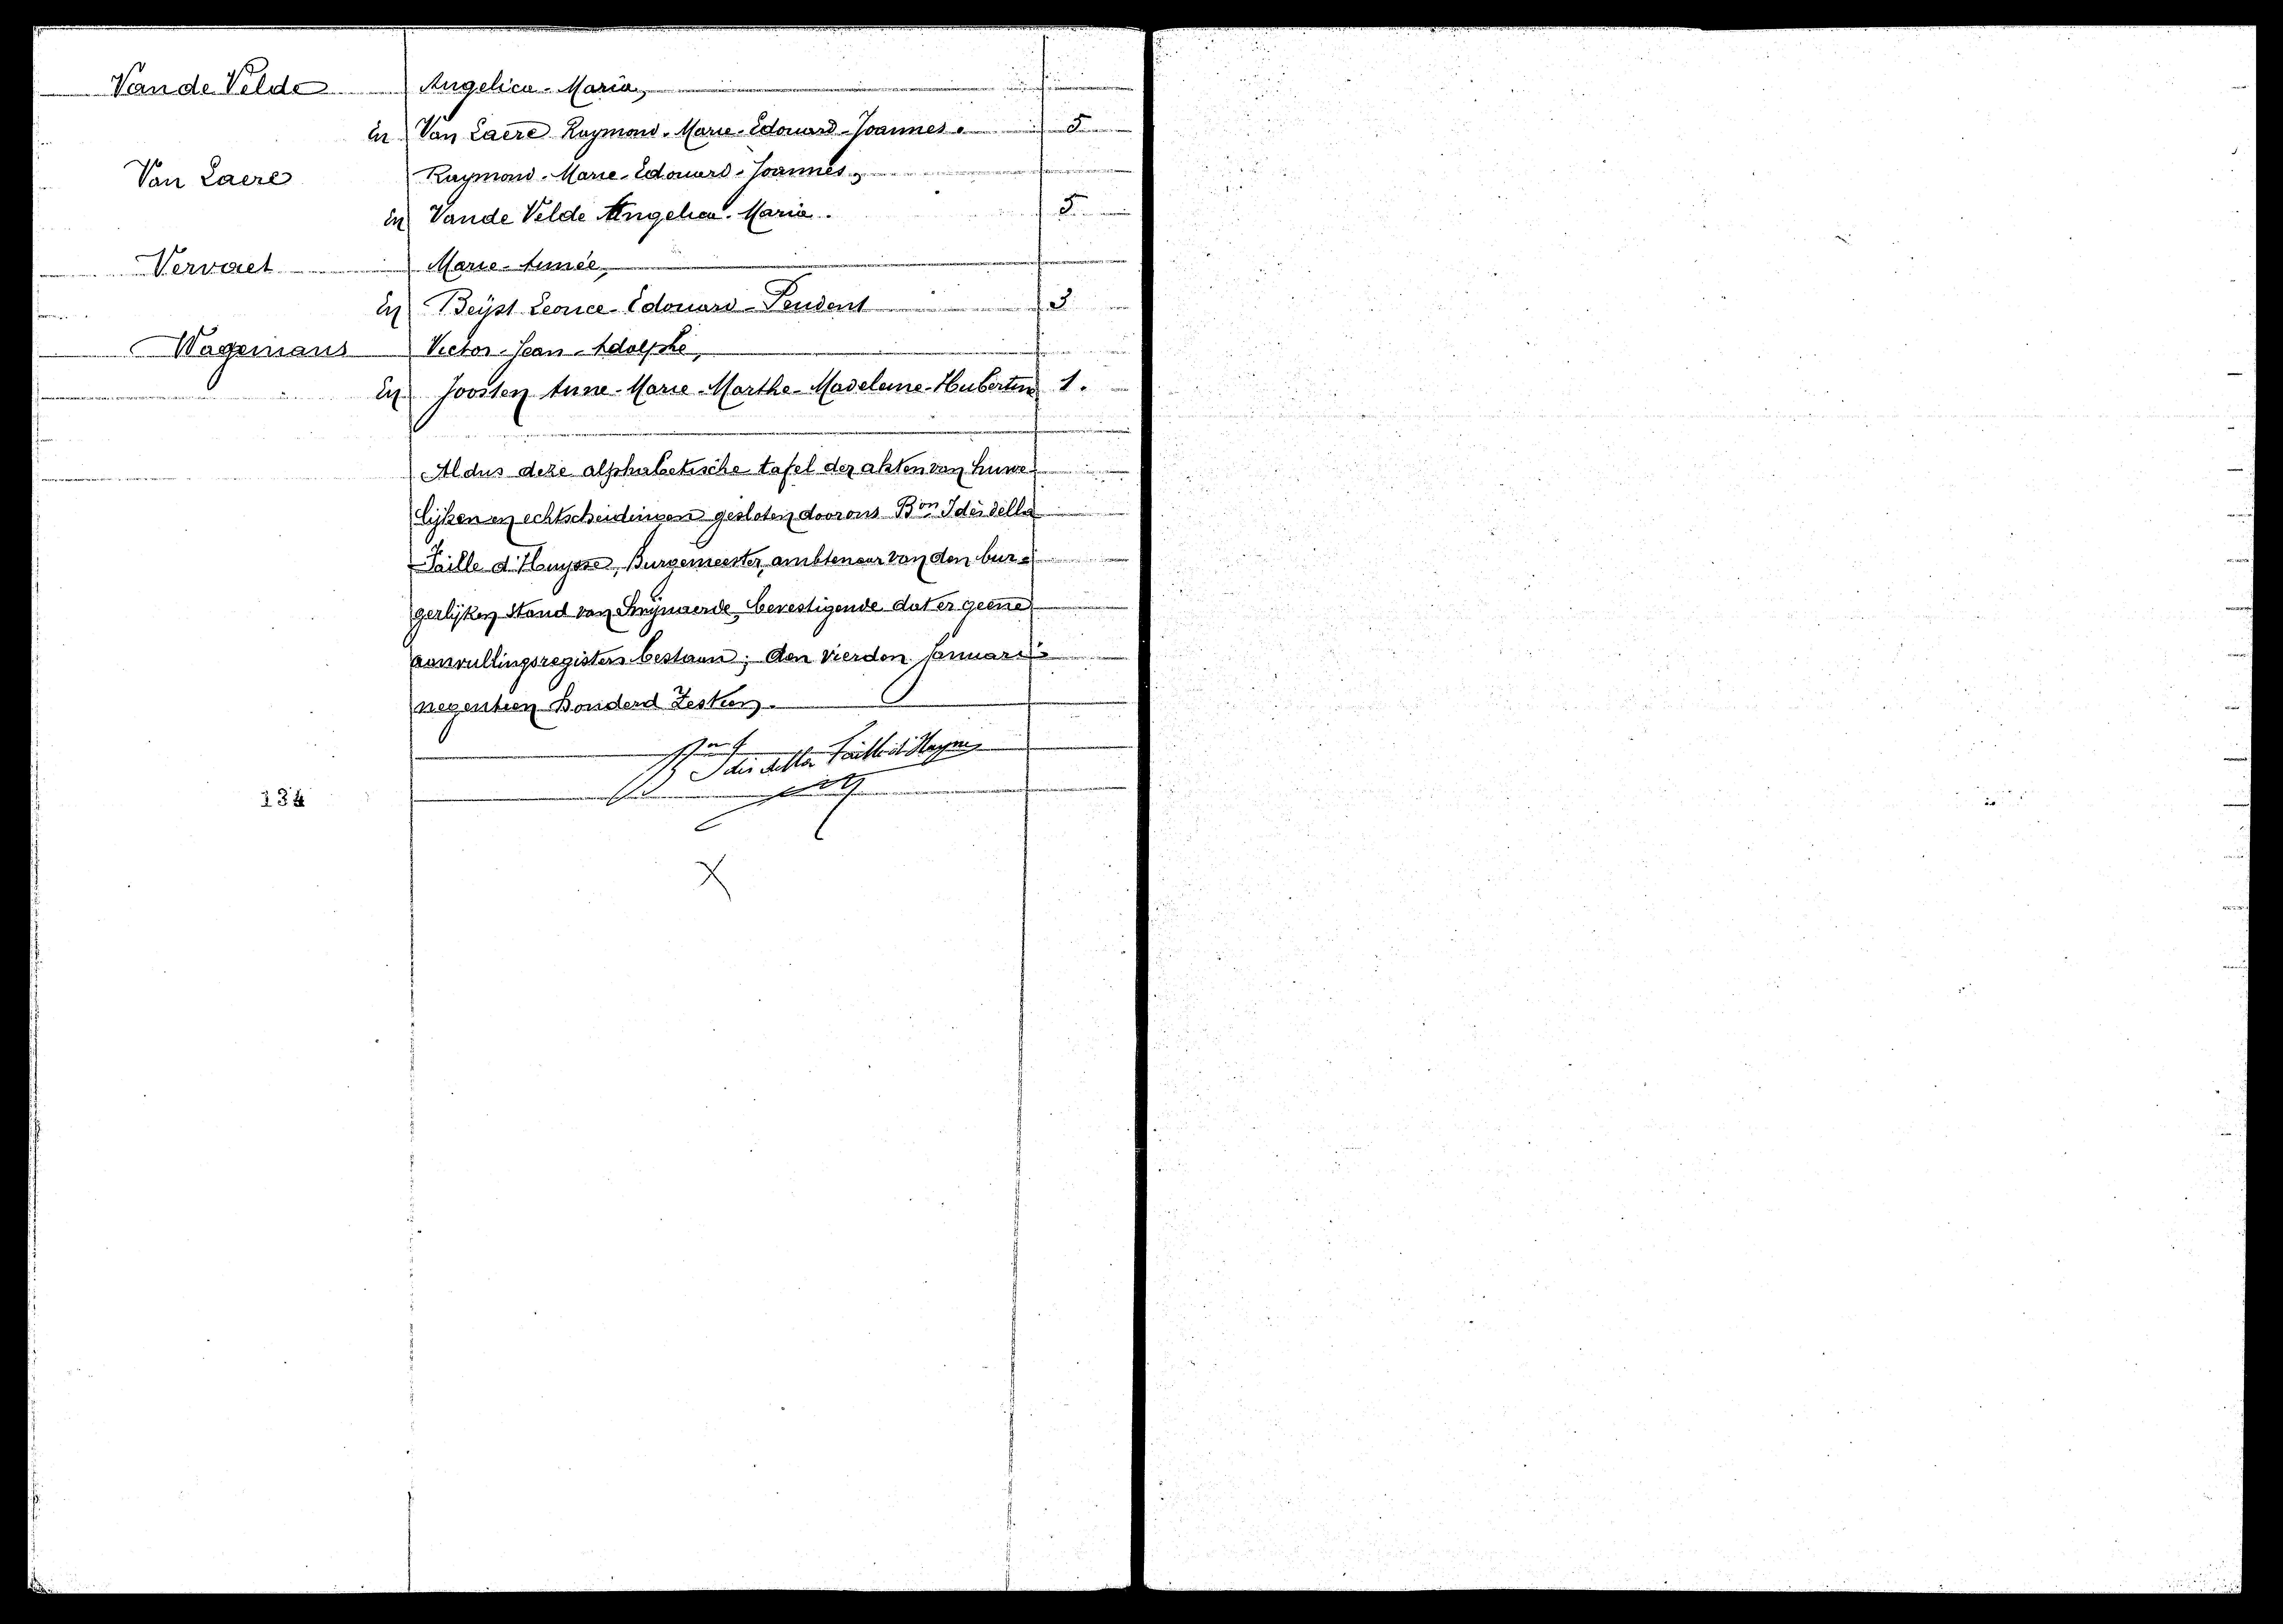 Van de Velde Angelica-Maria,
en Van Laere Raymond-Marie-Edouard-Joannes. 5
Van Laere Raymond-Marie-Edouard-Joannes,
en Van de Velde Angelica-Maria. 5
Vervaet Marie-Aimée,
en Beijst Leonce-Edouard-Prudent 3
Wagemans Victor-Jean-Adolphe,
en Joosten Anne-Marie-Marthe-Madeleine-Hubertine 1.
Aldus deze alphabetische tafel der akten van huwe-
lijken en echtscheidingen gesloten door ons Bon Idès della
Faille d'Huysse, Burgemeester, ambtenaar van den bur-
gerlijken Stand van Swijnaerde, bevestigende dat er geene
aanvullingsregisters bestaan; den vierden Januari
negentien honderd Zestien.
Bon Idès della Faille d'Huysse
134
X